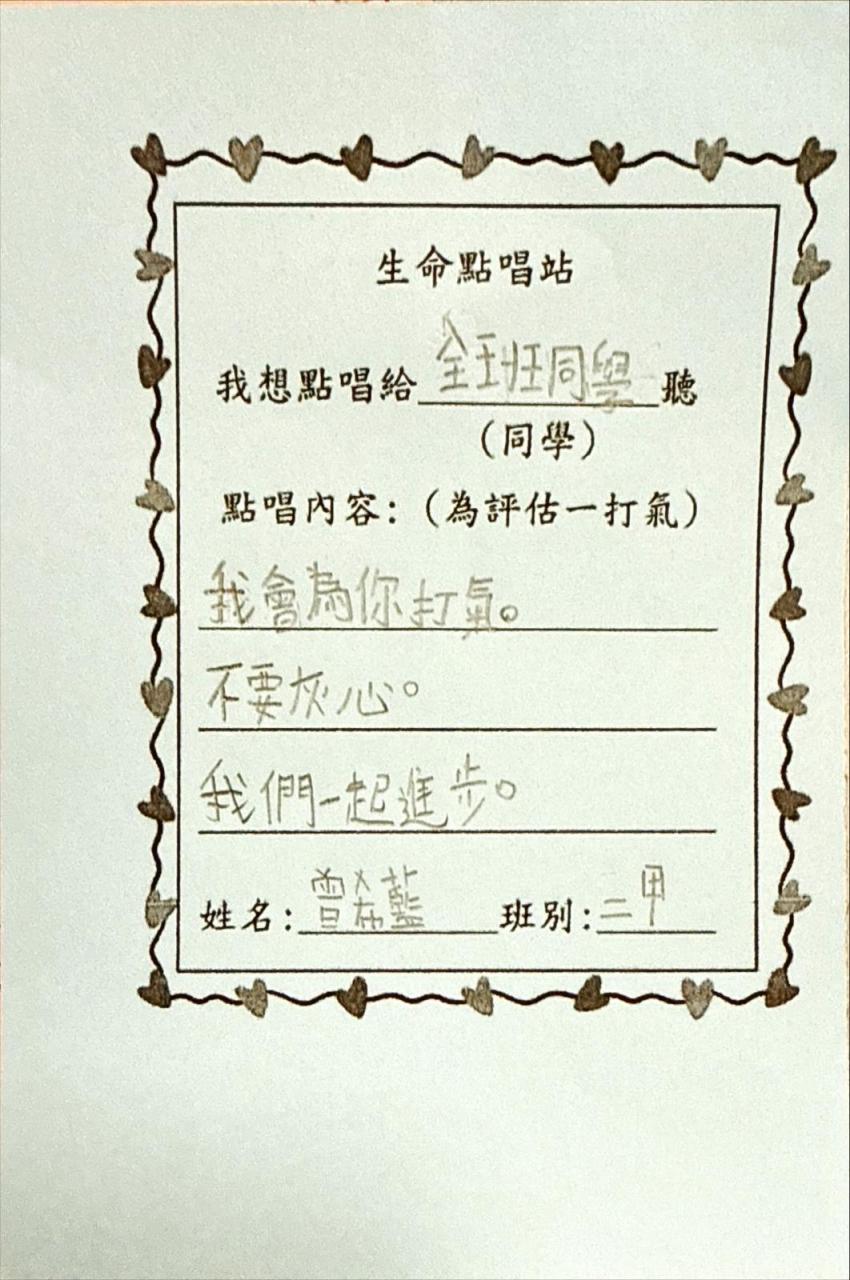 生命點唱站
我想點唱給全班同學聽
(同學)
點唱內容:(為評估一打氣)
我會為你打氣。
不要灰心。
我們一起進步。
姓名:曾希藍 班別:二甲